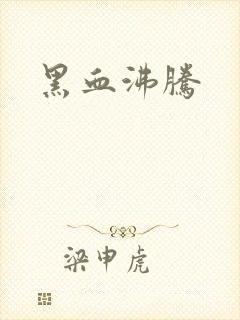 黑血沸騰
梁申虎